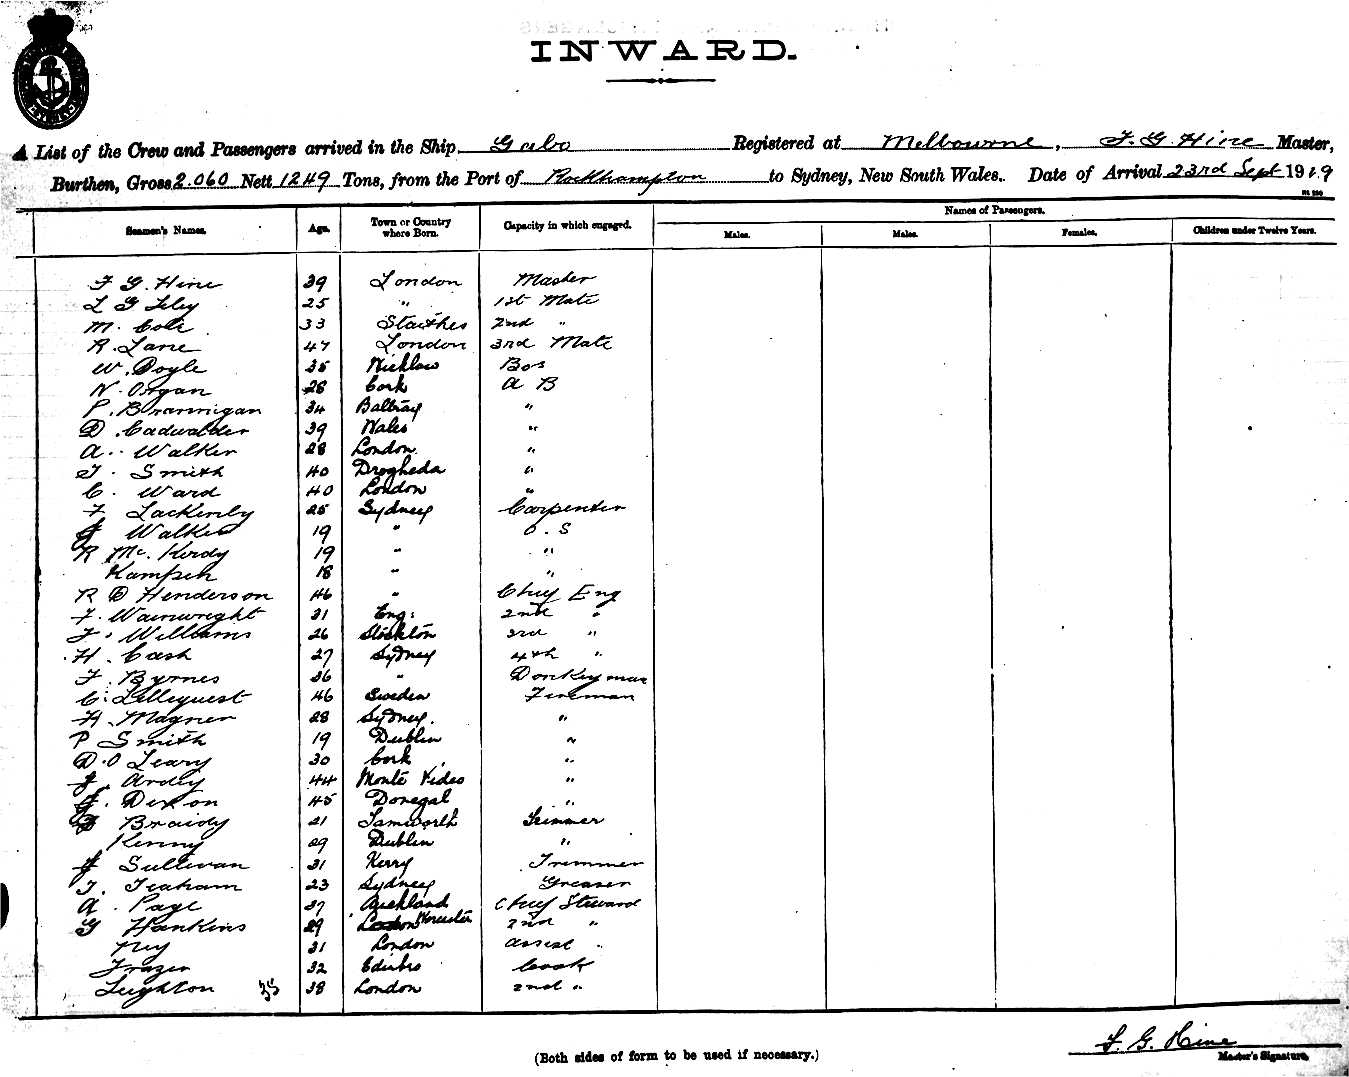 INWARD.
A List of the Crew and Passengers arrived in the Ship Gabo Registered at Melbourne, F. G. Hine Master,
Burthen, Gross 2.060 Nett 1249 Tons, from the Port of Rockhampton to Sydney, New South Wales. Date of Arrival 23rd Sept 1919
Names of Passengers.
Seamen's Names. Age. Town or Country where Born. Capacity in which engaged. Males. Males. Females. Children under Twelve Years.
F G. Hine 39 London Master
L G 25 " 1st Mate
M. Cole 33 Staithes 2nd "
R. Lane 47 London 3rd Mate
W. Doyle 35 Wicklow Bos
N. Organ 28 Cork A B
P. Brannigan 34 Baltray "
D. Cadwalder 39 Wales "
A. Walker 28 London "
T. Smith 40 Drogheda "
C. Ward 40 London "
F Lackenby 25 Sydney Carpenter
J Walker 19 " O. S
R Mc. Kerdy 19 " "
Kampen 18 " "
R D Henderson 46 " Chief Eng
F. Wainwright 31 Eng: 2nd "
F. Williams 26 Stockton 3rd "
H. Cash 27 Sydney 4th "
F. Byrnes 36 " Donkeyman
C. Lillequest 46 Sweden Fireman
H. Magner 28 Sydney. "
P Smith 19 Dublin "
D. O Leary 30 Cork "
J. Ardey 44 Monte Video "
J. Dixon 45 Donegal "
Braidy 21 Tamworth Trimmer
Kenny 29 Dublin "
J Sullivan 31 Kerry Trimmer
T. Teaham 23 Sydney Greaser
A. Page 37 Auckland Chief Steward
G Hankins 29 London Worcester 2nd "
31 London Assist "
Frazer 32 Edinbro Cook
Leighton 35 38 London 2nd "
F. G. Hine
Master's Signature.
(Both sides of form to be used if necessary.)